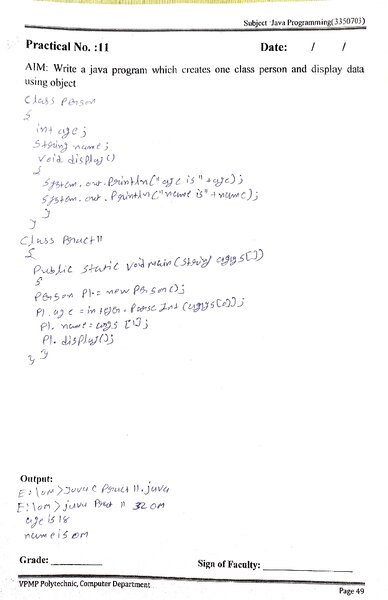 Subject :Java Programming(3350703)
Practical No. :11 Date: / /
AIM: Write a java program which creates one class person and display data
using object
Class Person
{
int age;
String name;
Void display()
{
System.out.Println("age is"+age);
System.out.Println("name is"+name);
}
}
Class Pract 11
{
Public static Void main(String args[])
{
Person P1.= new Person();
P1.age = integer.Parse Int(args[0]);
P1.name = args [1];
P1.display();
}
}
Output:
E:\om>Java c Pract 11.java
E:\om>java Pract 11 32 om
age is 18
name is om
Grade: Sign of Faculty:
VPMP Polytechnic, Computer Department
Page 49